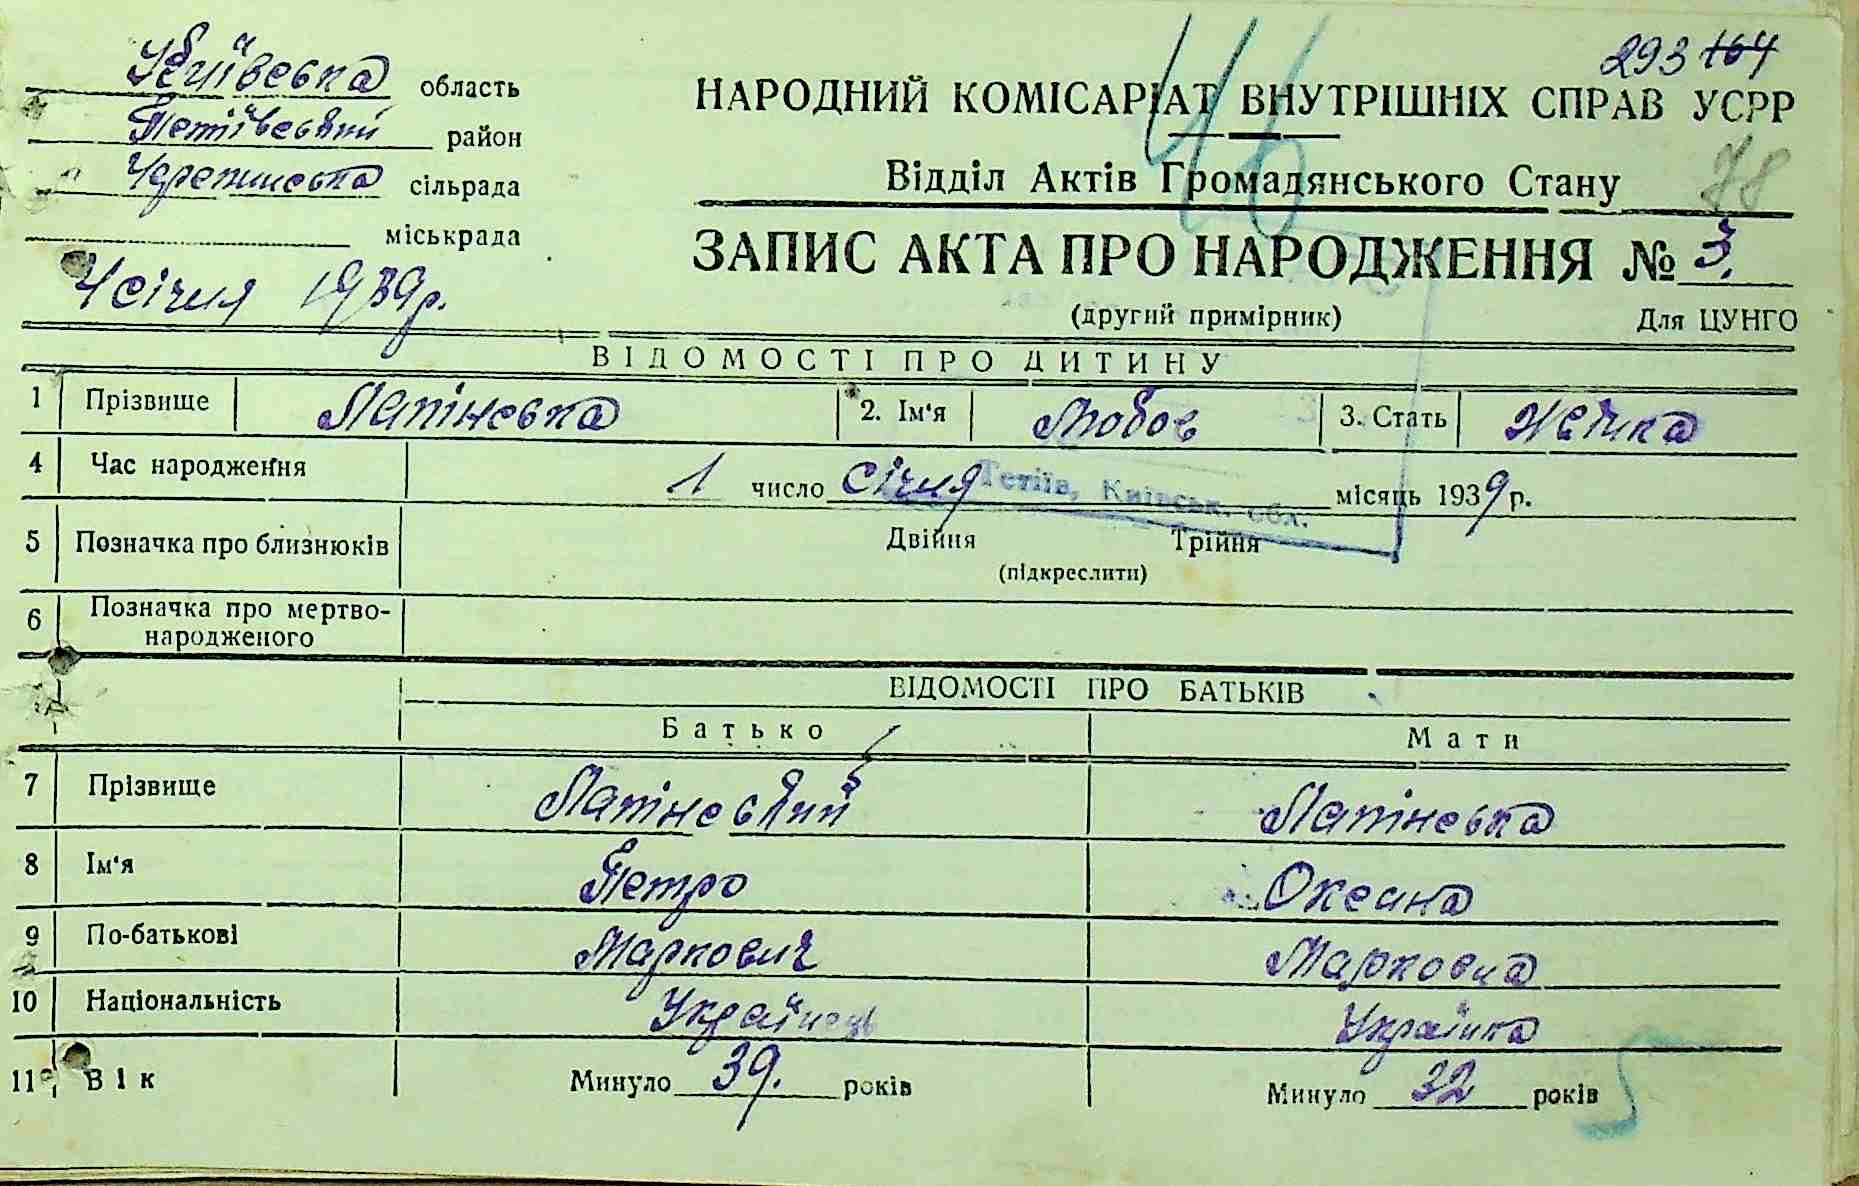 Київська область
293 164
НАРОДНИЙ КОМІСАРІАТ ВНУТРІШНІХ СПРАВ УСРР
Тетіївський район
46
Черепинська сільрада
Відділ Актів Громадянського Стану
78
міськрада
ЗАПИС АКТА ПРО НАРОДЖЕННЯ № 3.
4 січня 1939р.
(другий примірник) Для ЦУНГО
ВІДОМОСТІ ПРО ДИТИНУ
1 Прізвище Лапінська 2. Ім'я Любов 3. Стать Жінка
4 Час народження 1 число січня місяць 1939 р.
Тетіїв, Київськ. обл.
5 Позначка про близнюків Двійня Трійня
(підкреслити)
6 Позначка про мертво-
народженого
ВІДОМОСТІ ПРО БАТЬКІВ
Батько Мати
7 Прізвище Лапінський Лапінська
8 Ім'я Петро Оксана
9 По-батькові Маркович Марковна
10 Національність Українець Українка
11 Вік Минуло 39. років Минуло 32 років